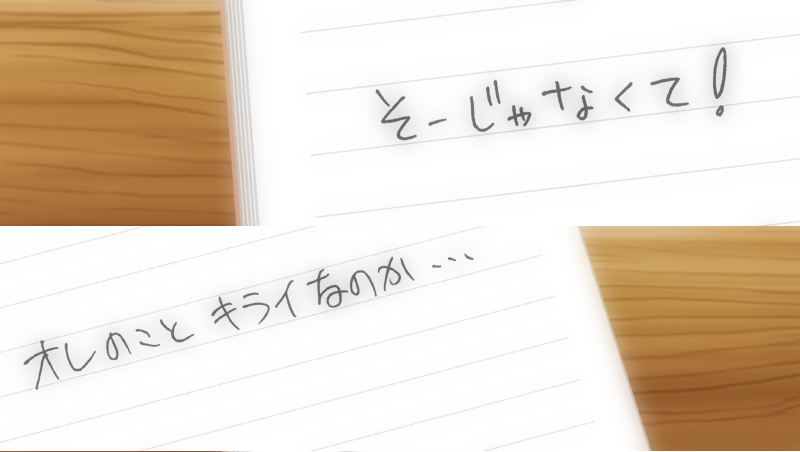 そーじゃなくて!
オレのこと キライなのか…